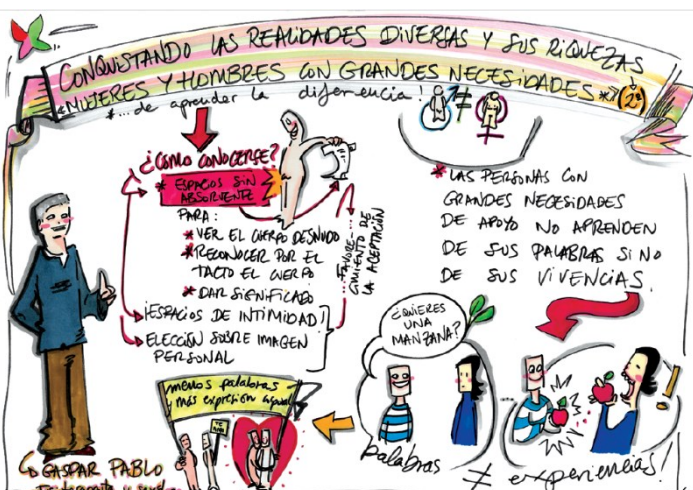 CONQUISTANDO LAS REALIDADES DIVERSAS Y SUS RIQUEZAS
"MUJERES Y HOMBRES CON GRANDES NECESIDADES *" (2ª)
*... de aprender la diferencia!
≠
¿CÓMO CONOCERSE?
* ESPACIOS SIN
ABSORVENTE
PARA:
* VER EL CUERPO DESNUDO
* RECONOCER POR EL
TACTO EL CUERPO
* DAR SIGNIFICADO
¡ESPACIOS DE INTIMIDAD!
ELECCIÓN SOBRE IMAGEN
PERSONAL
FAVORE-
CIMIENTO DE
LA ACEPTACIÓN
* LAS PERSONAS CON
GRANDES NECESIDADES
DE APOYO NO APRENDEN
DE SUS PALABRAS SI NO
DE SUS VIVENCIAS.
¿QUIERES
UNA
MANZANA?
ÑAM
ÑAM
!
palabras ≠ experiencias!
menos palabras
y más expresión
TE
GASPAR PABLO